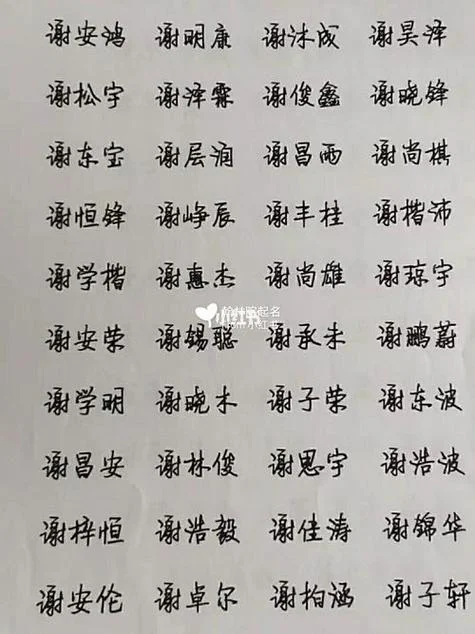 谢安鸿 谢明康 谢沐成 谢昊泽
谢松宇 谢泽霖 谢俊鑫 谢晓锋
谢东宝 谢层润 谢昌雨 谢尚棋
谢恒锋 谢峥辰 谢丰桂 谢楷沛
谢学楷 谢惠杰 谢尚雄 谢琼宇
小红书
谢安荣 谢锡聪 谢承未 谢鹏蔚
谢学明 谢晓木 谢子荣 谢东波
谢昌安 谢林俊 谢思宇 谢浩波
谢梓恒 谢浩毅 谢佳涛 谢锦华
谢安伦 谢卓尔 谢柏涵 谢子轩